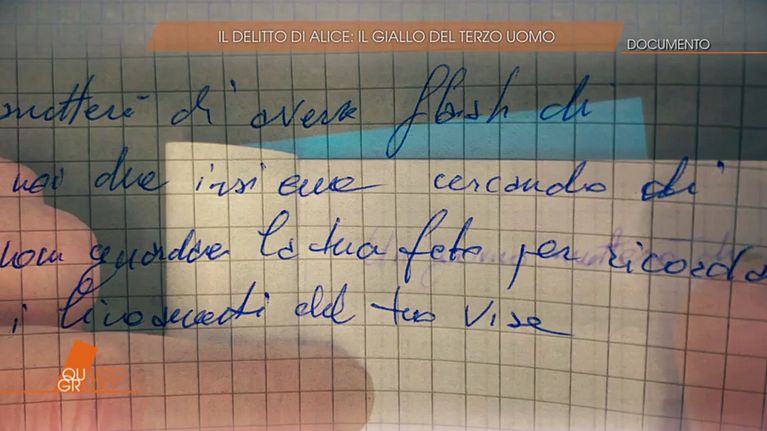 IL DELITTO DI ALICE: IL GIALLO DEL TERZO UOMO
DOCUMENTO
smetterò di avere flash di
noi due insieme cercando di
non guardare la tua foto per ricorda
i lineamenti del tuo viso
QU
GR